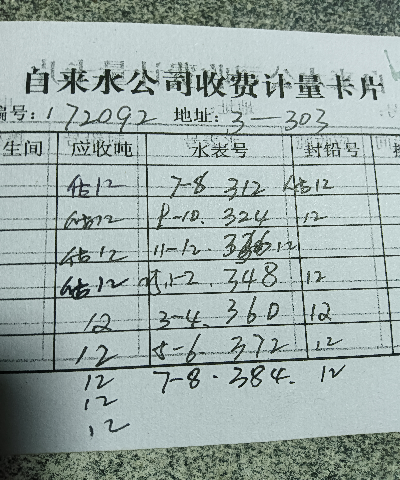 自来水公司收费计量卡片
编号:172092 地址:3-303
生间 应收吨 水表号 封铅号
估12 7-8 312 估12
估12 9-10. 324 12
估12 11-12. 12
估12 1-2. 348 12
12 3-4. 360 12
12 5-6. 372 12
12 7-8. 384. 12
12
12